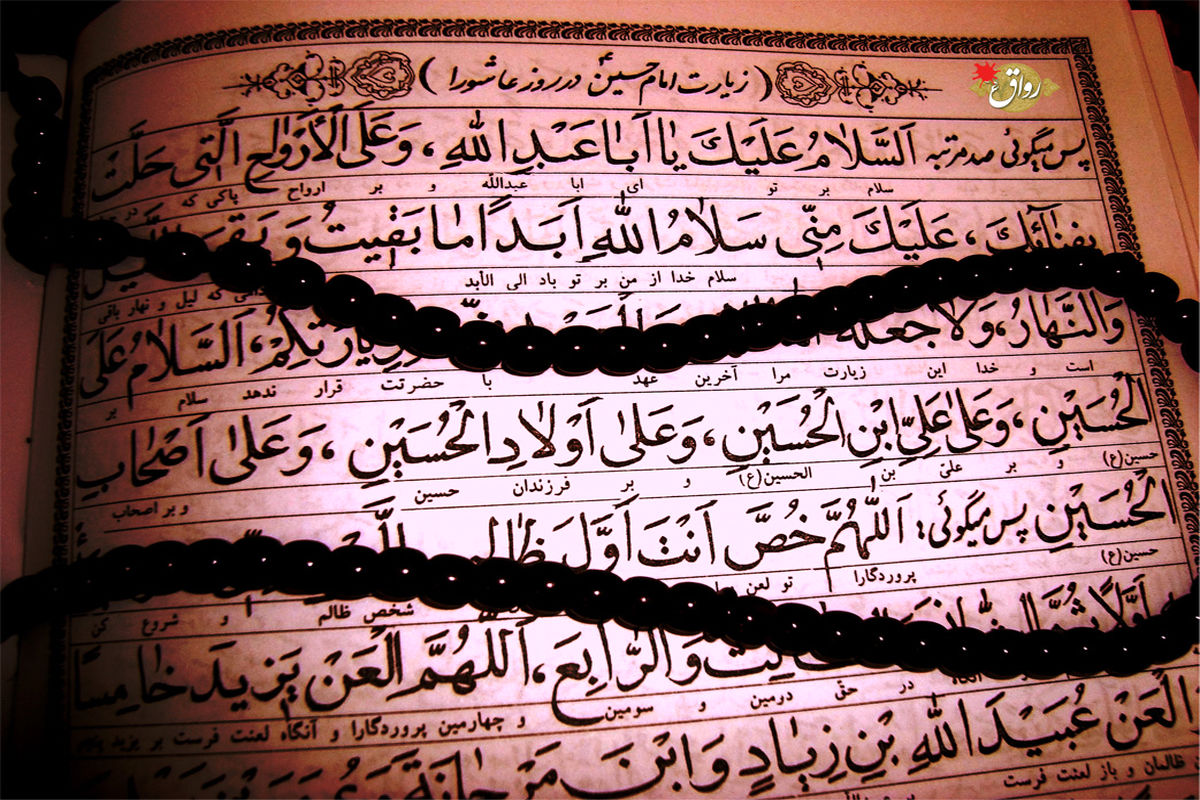 ( زیارت امام حسین ع در روز عاشورا )
رواق
پس میگوئی صد مرتبه اَلسَّلامُ عَلَیْكَ یا اَبا عَبْدِ اللهِ، وَ عَلَی الْأَرْواحِ الَّتی حَلَّتْ
سلام بر تو ای ابا عبدالله و بر ارواح پاکی که در
بِفِنائِكَ، عَلَیْكَ مِنّی سَلامُ اللهِ اَبَداً ما بَقیتُ وَ بَقِیَ
سلام خدا از من بر تو باد الی الأبد که لیل و نهار باقی
وَالنَّهارُ، وَلا جَعَلَهُ اَلسَّلامُ عَلَی
است و خدا این زیارت مرا آخرین عهد با حضرتت قرار ندهد سلام بر
الْحُسَیْنِ، وَ عَلی عَلِیِّ ابْنِ الْحُسَیْنِ، وَ عَلی اَوْلادِ الْحُسَیْنِ، وَ عَلی اَصْحابِ
حسین(ع) و بر علیّ بن الحسین(ع) و بر فرزندان حسین و بر اصحاب
الْحُسَیْنِ پس میگوئی: اَللّهُمَّ خُصَّ اَنْتَ اَوَّلَ ظالِمٍ
حسین(ع) پروردگارا تو لعن شخص ظالم و شروع کن
اَوَّلاً ثُمَّ وَالرّابِعَ، اَللّهُمَّ الْعَنْ یَزیدَ خامِساً
در حق دومین و سومین و چهارمین پروردگارا و آنگاه لعنت فرست بر یزید پنجم
الْعَنْ عُبَیْدَ اللهِ بْنَ زِیادٍ وَ ابْنَ مَرْجانَةَ
ظالمان و باز لعنت فرست